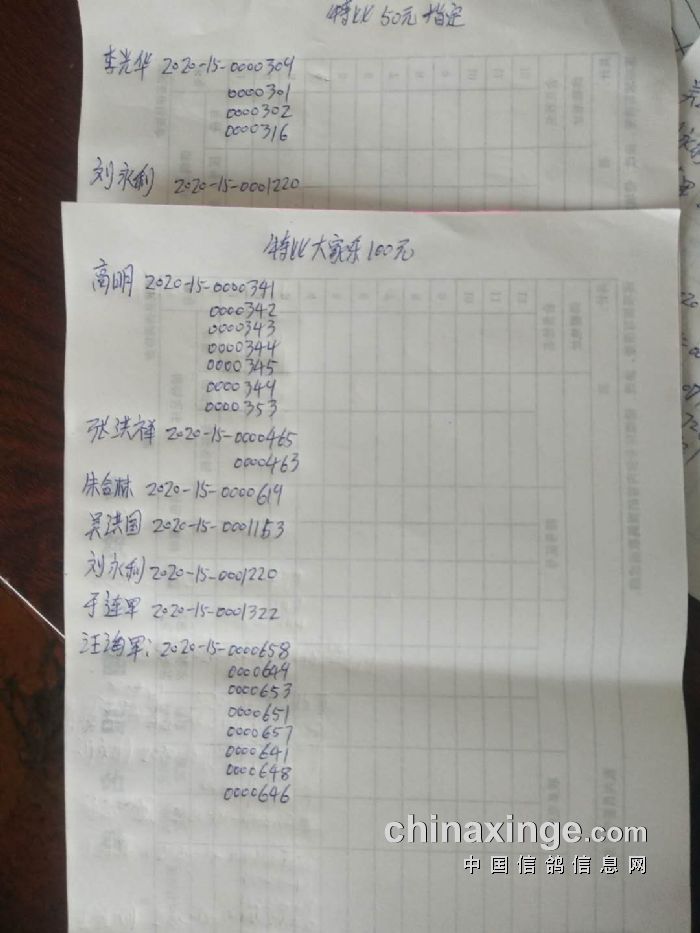 特比 50元 指定
李光华 2020-15-0000304
0000301
0000302
0000316
刘永利 2020-15-0001220
特比大家乐100元
高明 2020-15-0000341
0000342
0000343
0000344
0000345
0000349
0000353
张洪祥 2020-15-0000465
0000463
朱合林 2020-15-0000619
吴洪国 2020-15-0001153
刘永利 2020-15-0001220
于连军 2020-15-0001322
汪海军: 2020-15-0000658
0000649
0000653
0000651
0000657
0000641
0000648
0000646
chinaxinge.com
中国信鸽信息网